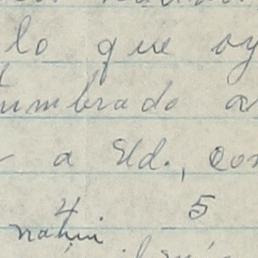 lo que oy
umbrado a
a Ud., con
4 5